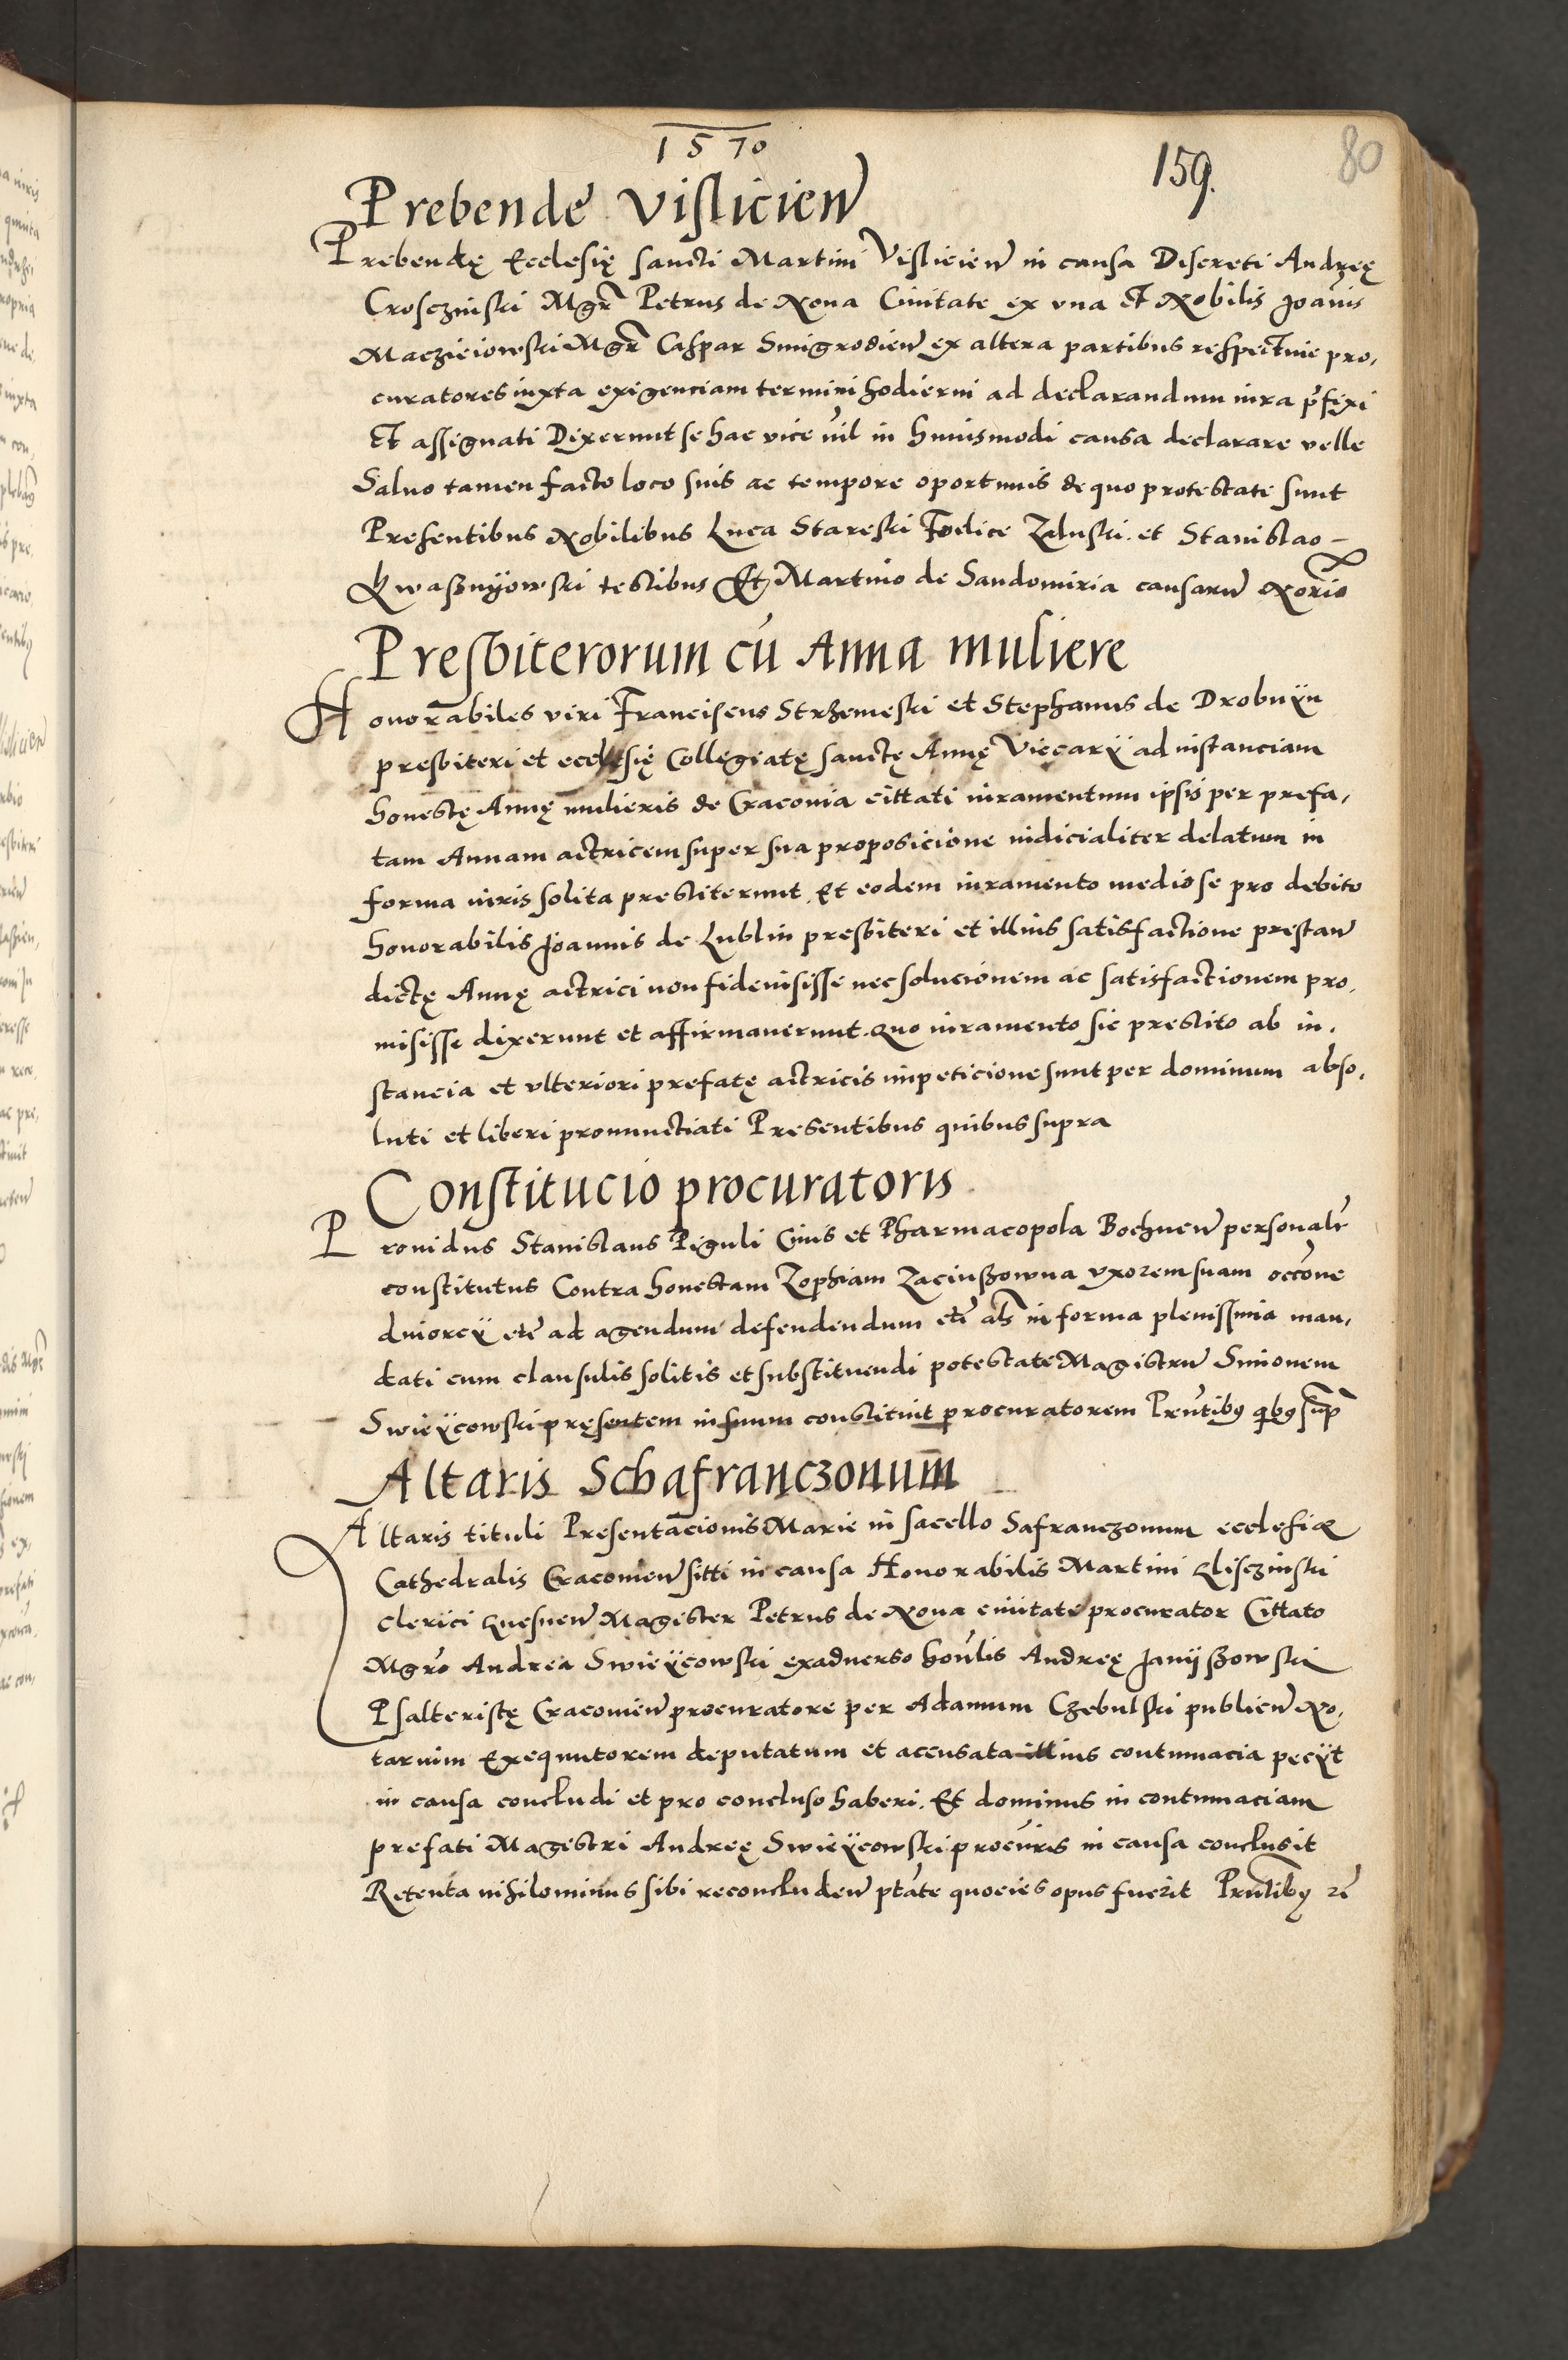 1570
159.
80
Prebende Vislicień
Prebendę Ecclesię sancti Martini Visliciеń in causa Discreti Andreę
Crosczinski Mgr̃ Petrus de Nova Civitate ex vna Et Nobilis Joañis
Maczieiowski Mgr̃ Caspar Smigrodień ex altera partibus respectiue pro,
curatores iuxta exigenciam termini hodierni ad declarandum iura p̃fixi
Et assignati Dixerunt se hac vice nil in huiusmodi causa declarare velle
Saluo tamen facto loco suis ac tempore oportunis de quo protestate sunt
Presentibus Nobilibus Luca Stareski Foelice Zaluski. et Stanislao –
Kwasznÿowski testibus Et Martino de Sandomiria causarū Norio
Presbiterorum cū Anna muliere
Honorabiles viri Franciscus Strzemeski et Stephanus de Drobnÿn
presbiteri et ecclesię Collegiatę sanctę Annę Viccarÿ ad instanciam
honestę Annę mulieris de Cracouia cittati iuramentum ipsis per prefa,
tam Annam actricem super sua proposicione iudicialiter delatum in
forma iuris solita prestiterunt. Et eodem iuramento medio se pro debito
honorabilis Joannis de Lublin presbiteri et illius satisfactione prestań
dictę Annę actrici non fideiusisse nec solucionem ac satisfactionem pro,
misisse dixerunt et affirmauerunt. Quo iuramento sic prestito ab in,
stancia et vlteriori prefatę actricis impeticione sunt per dominum abso,
luti et liberi pronunctiati Presentibus quibus supra
Constitucio procuratoris
Prouidus Stanislaus Piguli Ciuis et Pharmacopola Bochneń personalr̃
constitutus Contra honestam Zophiam Zaciuszowna vxorem suam occõne
diuorcÿ etc̃ ad agendum defendendum etc̃ als̃ in forma plenissima man,
dati cum clausulis solitis et substituendi potestate Magistrū Simonem
Swieÿcowski pręsentem in suum constituit procuratorem Prñtibꝯ qibꝯ sup̃
Altaris Schafranczonum
Altaris tituli Presentacionis Marie in sacello Safranczonum ecclesiæ
Cathedralis Cracouień sitti in causa Honorabilis Martini Glisczinski
clerici Gnesneń Magister Petrus de Noua ciuitate procurator Cittato
Mgrõ Andrea Swieÿcowski exaduerso hoñlis Andreę Janÿszowski
Psalteristę Cracouień procuratore per Adamum Czebulski publicū No,
tarium Exequutorem deputatum et accusata illius contumacia pecÿt
in causa concludi et pro concluso haberi. Et dominus in contumaciam
prefati Magistri Andreę Swieÿcowski procuris in causa conclusit
Retenta nihilominus sibi reconcludeń ptãte quocies opus fuerit Prñtibꝯ